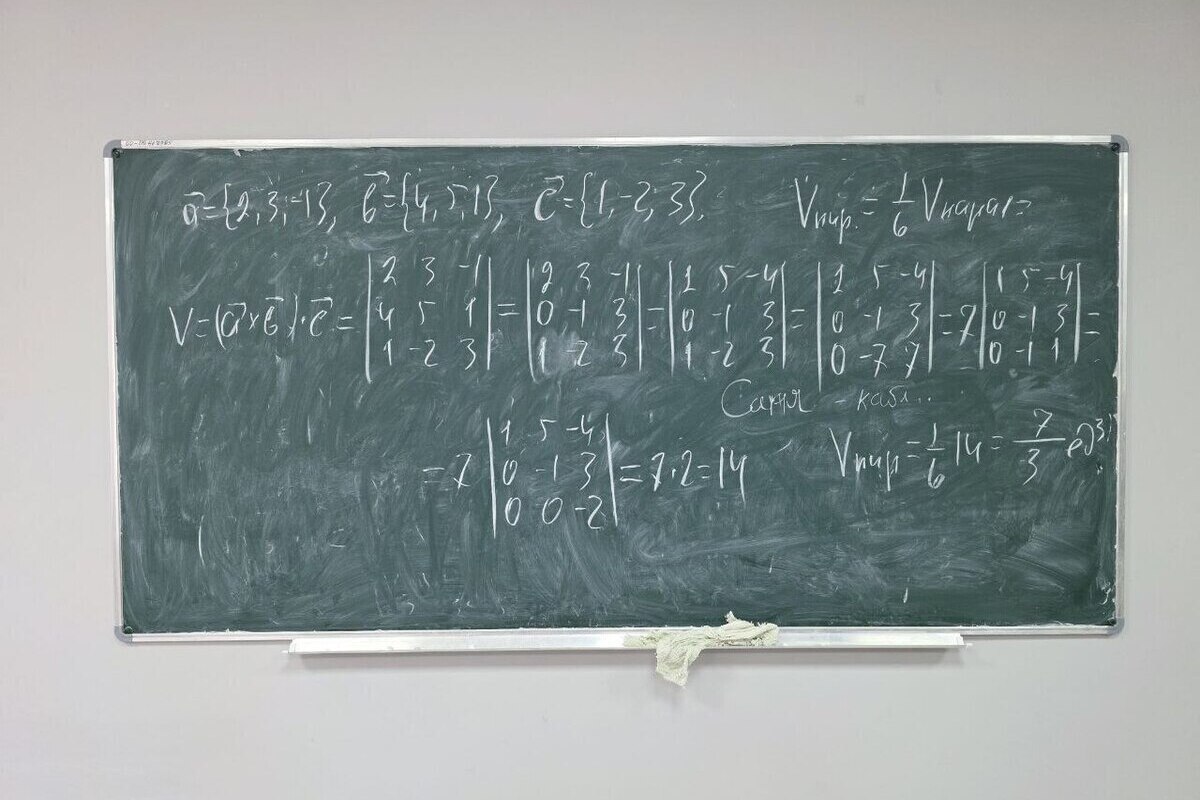 a⃗={2,3,-1}, b⃗={4,5,1}, c⃗={1,-2,3}. Vпир.= 1/6 Vпарал=
V=(a⃗×b⃗)·c⃗= |2 3 -1; 4 5 1; 1 -2 3| = |2 3 -1; 0 -1 3; 1 -2 3| = |1 5 -4; 0 -1 3; 1 -2 3| = |1 5 -4; 0 -1 3; 0 -7 7| = 7 |1 5 -4; 0 -1 3; 0 -1 1| =
Саня - кабл...
= 7 |1 5 -4; 0 -1 3; 0 0 -2| = 7·2=14 Vпир = 1/6 14 = 7/3 ед³